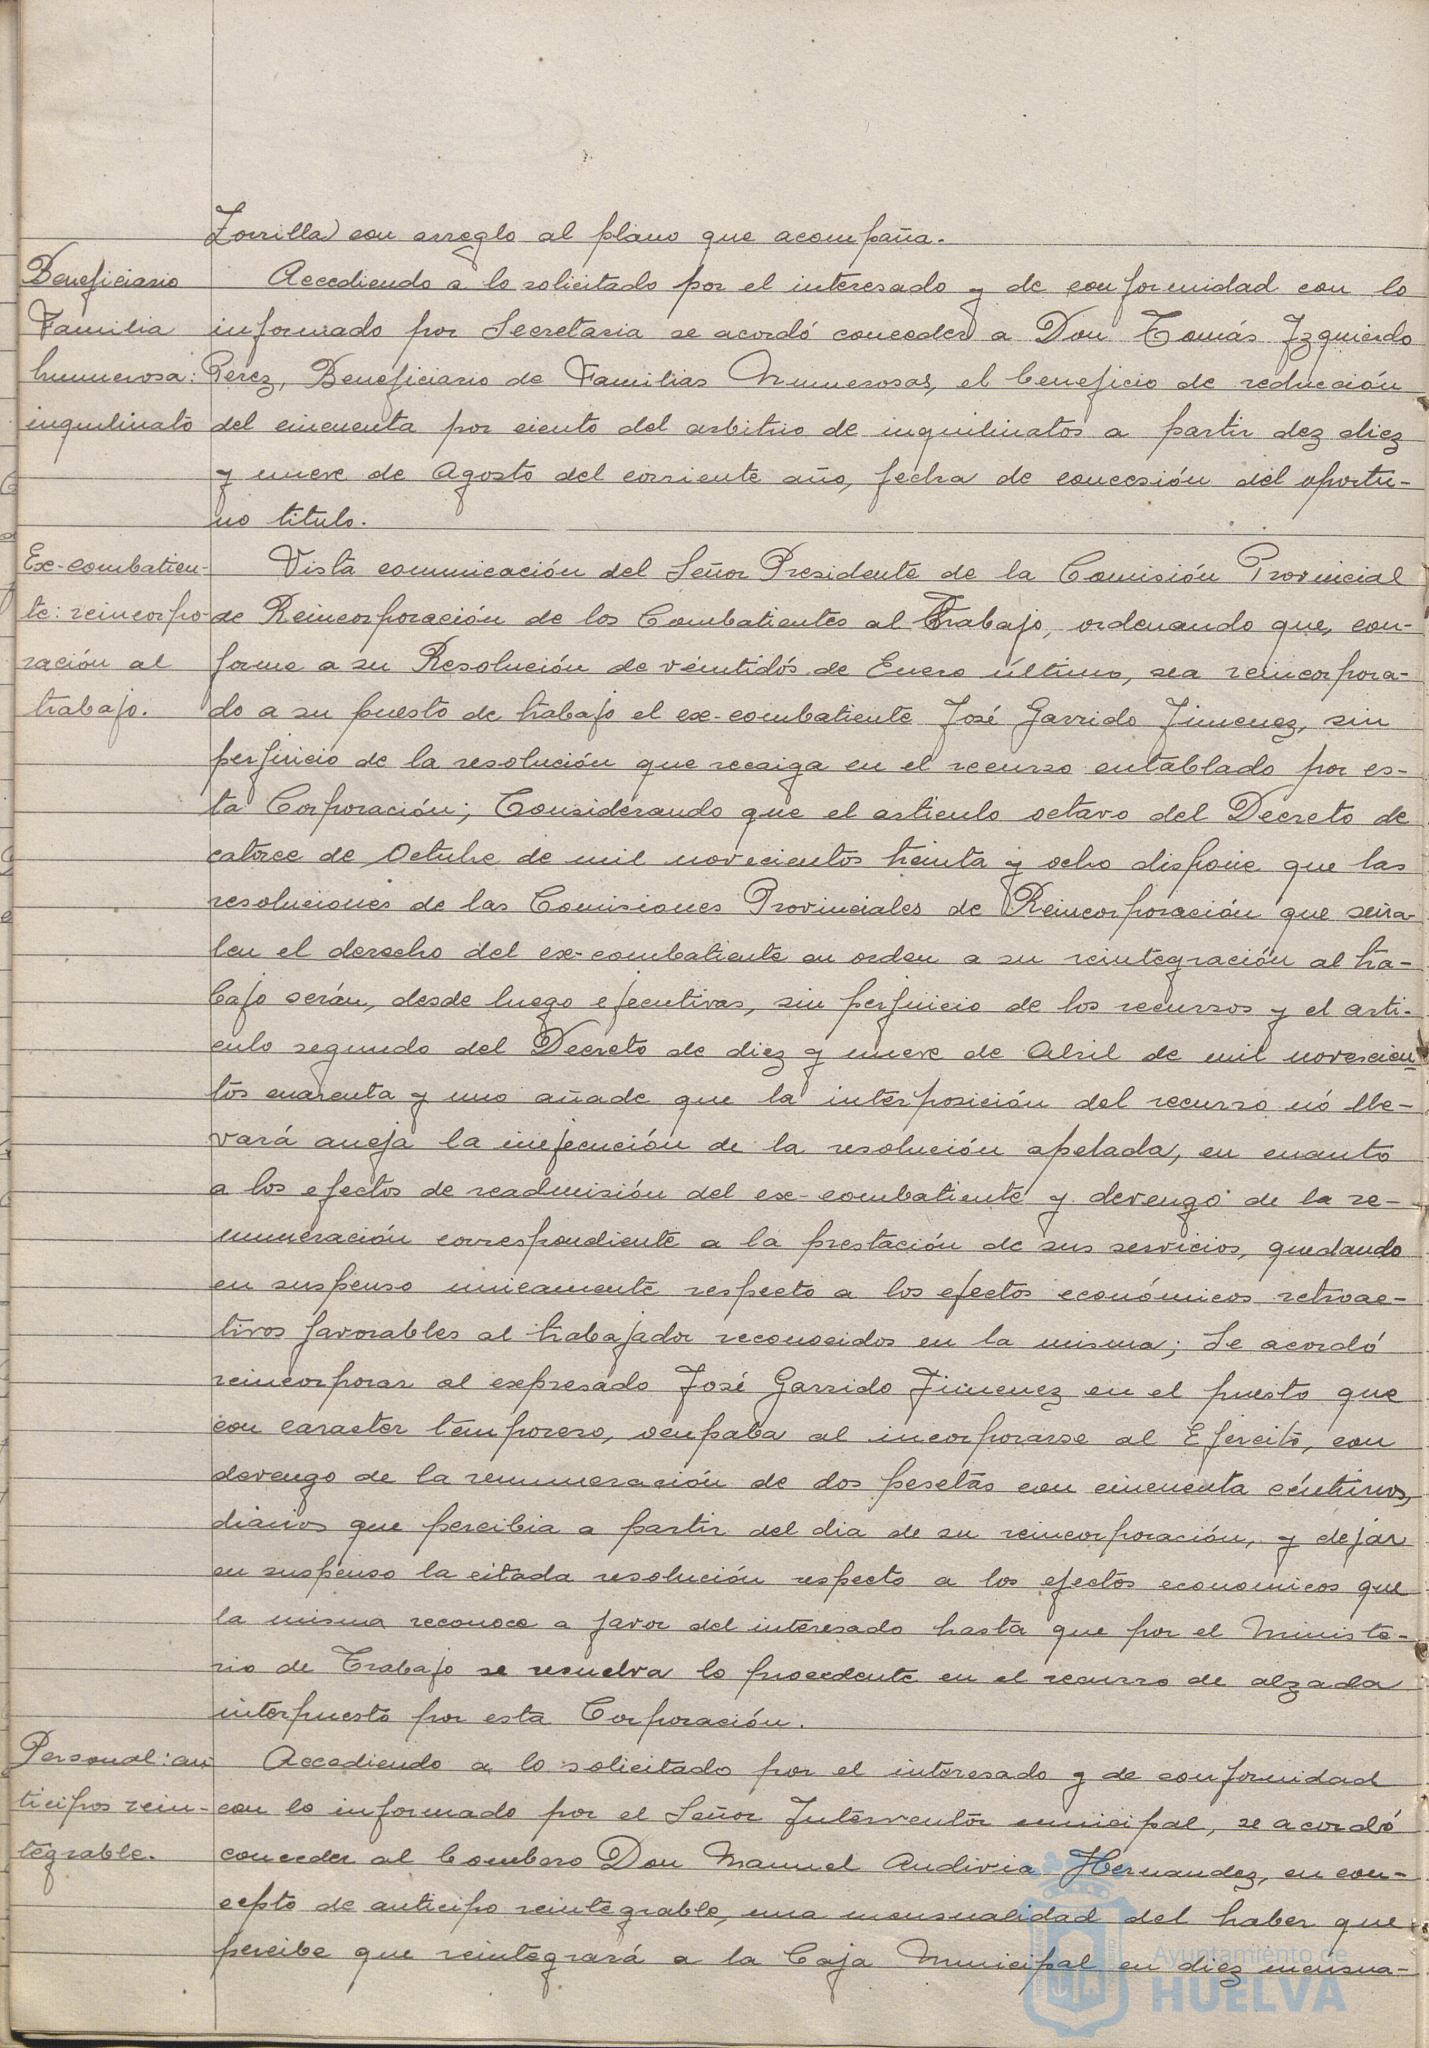 Zorrilla) con arreglo al plano que acompaña.
Beneficiario
Familia
humerosa:
inquilinato
Accediendo a lo solicitado por el interesado y de conformidad con lo
informado por Secretaria se acordó conceder a Don Tomás Izquierdo
Perez, Beneficiario de Familias Numerosas, el beneficio de reducción
del cincuenta por ciento del arbitrio de inquilinatos a partir dez diez
y nueve de Agosto del corriente año, fecha de concesión del oportu-
no titulo.
Ex-combatien-
te: reincorpo-
ración al
trabajo.
Vista comunicación del Señor Presidente de la Comisión Provincial
de Reincorporación de los Combatientes al Trabajo, ordenando que, con-
forme a su Resolución de veintidós de Enero último, sea reincorpora-
do a su puesto de trabajo el ex-combatiente José Garrido Jimenez, sin
perjuicio de la resolución que recaiga en el recurso entablado por es-
ta Corporación; Considerando que el articulo octavo del Decreto de
catorce de Octubre de mil novecientos treinta y ocho dispone que las
resoluciones de las Comisiones Provinciales de Reincorporación que seña-
len el derecho del ex-combatiente en orden a su reintegración al tra-
bajo serán, desde luego ejecutivas, sin perjuicio de los recursos y el arti-
culo segundo del Decreto de diez y nueve de Abril de mil novescien-
tos cuarenta y uno añade que la interposición del recurso nó lle-
vará aneja la inejecución de la resolución apelada, en cuanto
a los efectos de readmisión del ex-combatiente y devengo de la re-
muneración correspondiente a la prestación de sus servicios, quedando
en suspenso unicamente respecto a los efectos económicos retroac-
tivos favorables al trabajador reconocidos en la misma; Se acordó
reincorporar al expresado José Garrido Jimenez en el puesto que
con caracter temporero, ocupaba al incorporarse al Ejercito, con
devengo de la remuneración de dos pesetas con cincuenta céntimos,
diarios que percibia a partir del dia de su reincorporación, y dejar
en suspenso la citada resolución respecto a los efectos economicos que
la misma reconoce a favor del interesado hasta que por el Ministe-
rio de Trabajo se resuelva lo procedente en el recurso de alzada
interpuesto por esta Corporación.
Personal: an
ticipos rein-
tegrable.
Accediendo a lo solicitado por el interesado y de conformidad
con lo informado por el Señor Interventor municipal, se acordó
conceder al bombero Don Manuel Andivia Hernandez, en con-
cepto de anticipo reintegrable, una mensualidad del haber que
percibe que reintegrará a la Caja Municipal en diez mensua-
Ayuntamiento de
HUELVA